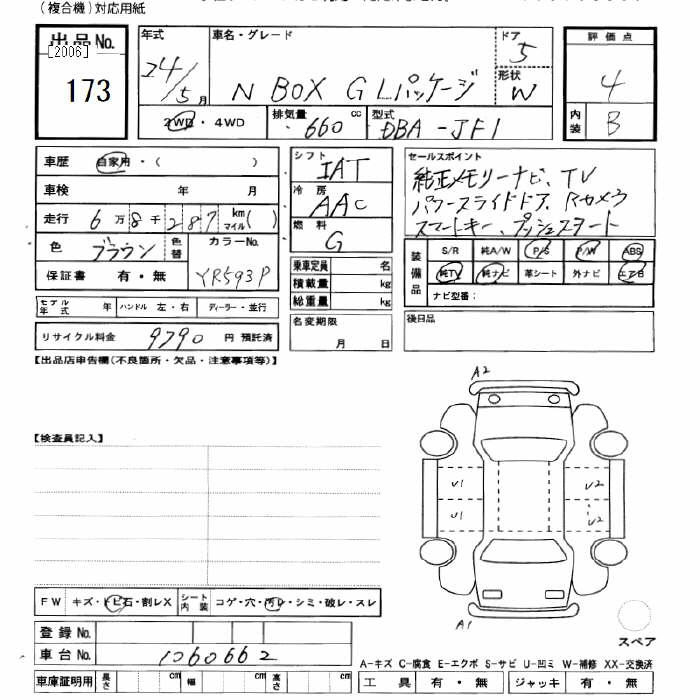 (複合機)対応用紙
出品No.
[2006]
173
年式
24/5月
車名・グレード
N BOX G Lパッケージ
ドア
5
形状
W
評価点
4
内装
B
2WD・4WD
排気量
660 cc
型式
DBA-JF1
車歴 自家用・( )
車検 年 月
走行 6万8千287 km マイル( )
色 ブラウン 色替
カラーNo.
YR593P
保証書 有・無
モデル年式 年 ハンドル 左・右 ディーラー・並行
リサイクル料金 9790 円 預託済
シフト
IAT
冷房
AAC
燃料
G
乗車定員 名
積載量 kg
総重量 kg
名変期限
月 日
セールスポイント
純正メモリーナビ、TV
パワースライドドア、Rカメラ
スマートキー、プッシュスタート
装備品
S/R 純A/W P/S P/W ABS
純TV 純ナビ 革シート 外ナビ エアB
ナビ型番:
後日品
【出品店申告欄(不良箇所・欠品・注意事項等)】
【検査員記入】
A2
U1 U2
U1 U2
A1
スペア
FW キズ・トビ石・割レX シート内装 コゲ・穴・汚レ・シミ・破レ・スレ
登録No.
車台No. 1060662
車庫証明用 長さ cm 幅 cm 高さ cm
A-キズ C-腐食 E-エクボ S-サビ U-凹ミ W-補修 XX-交換済
工具 有・無 ジャッキ 有・無